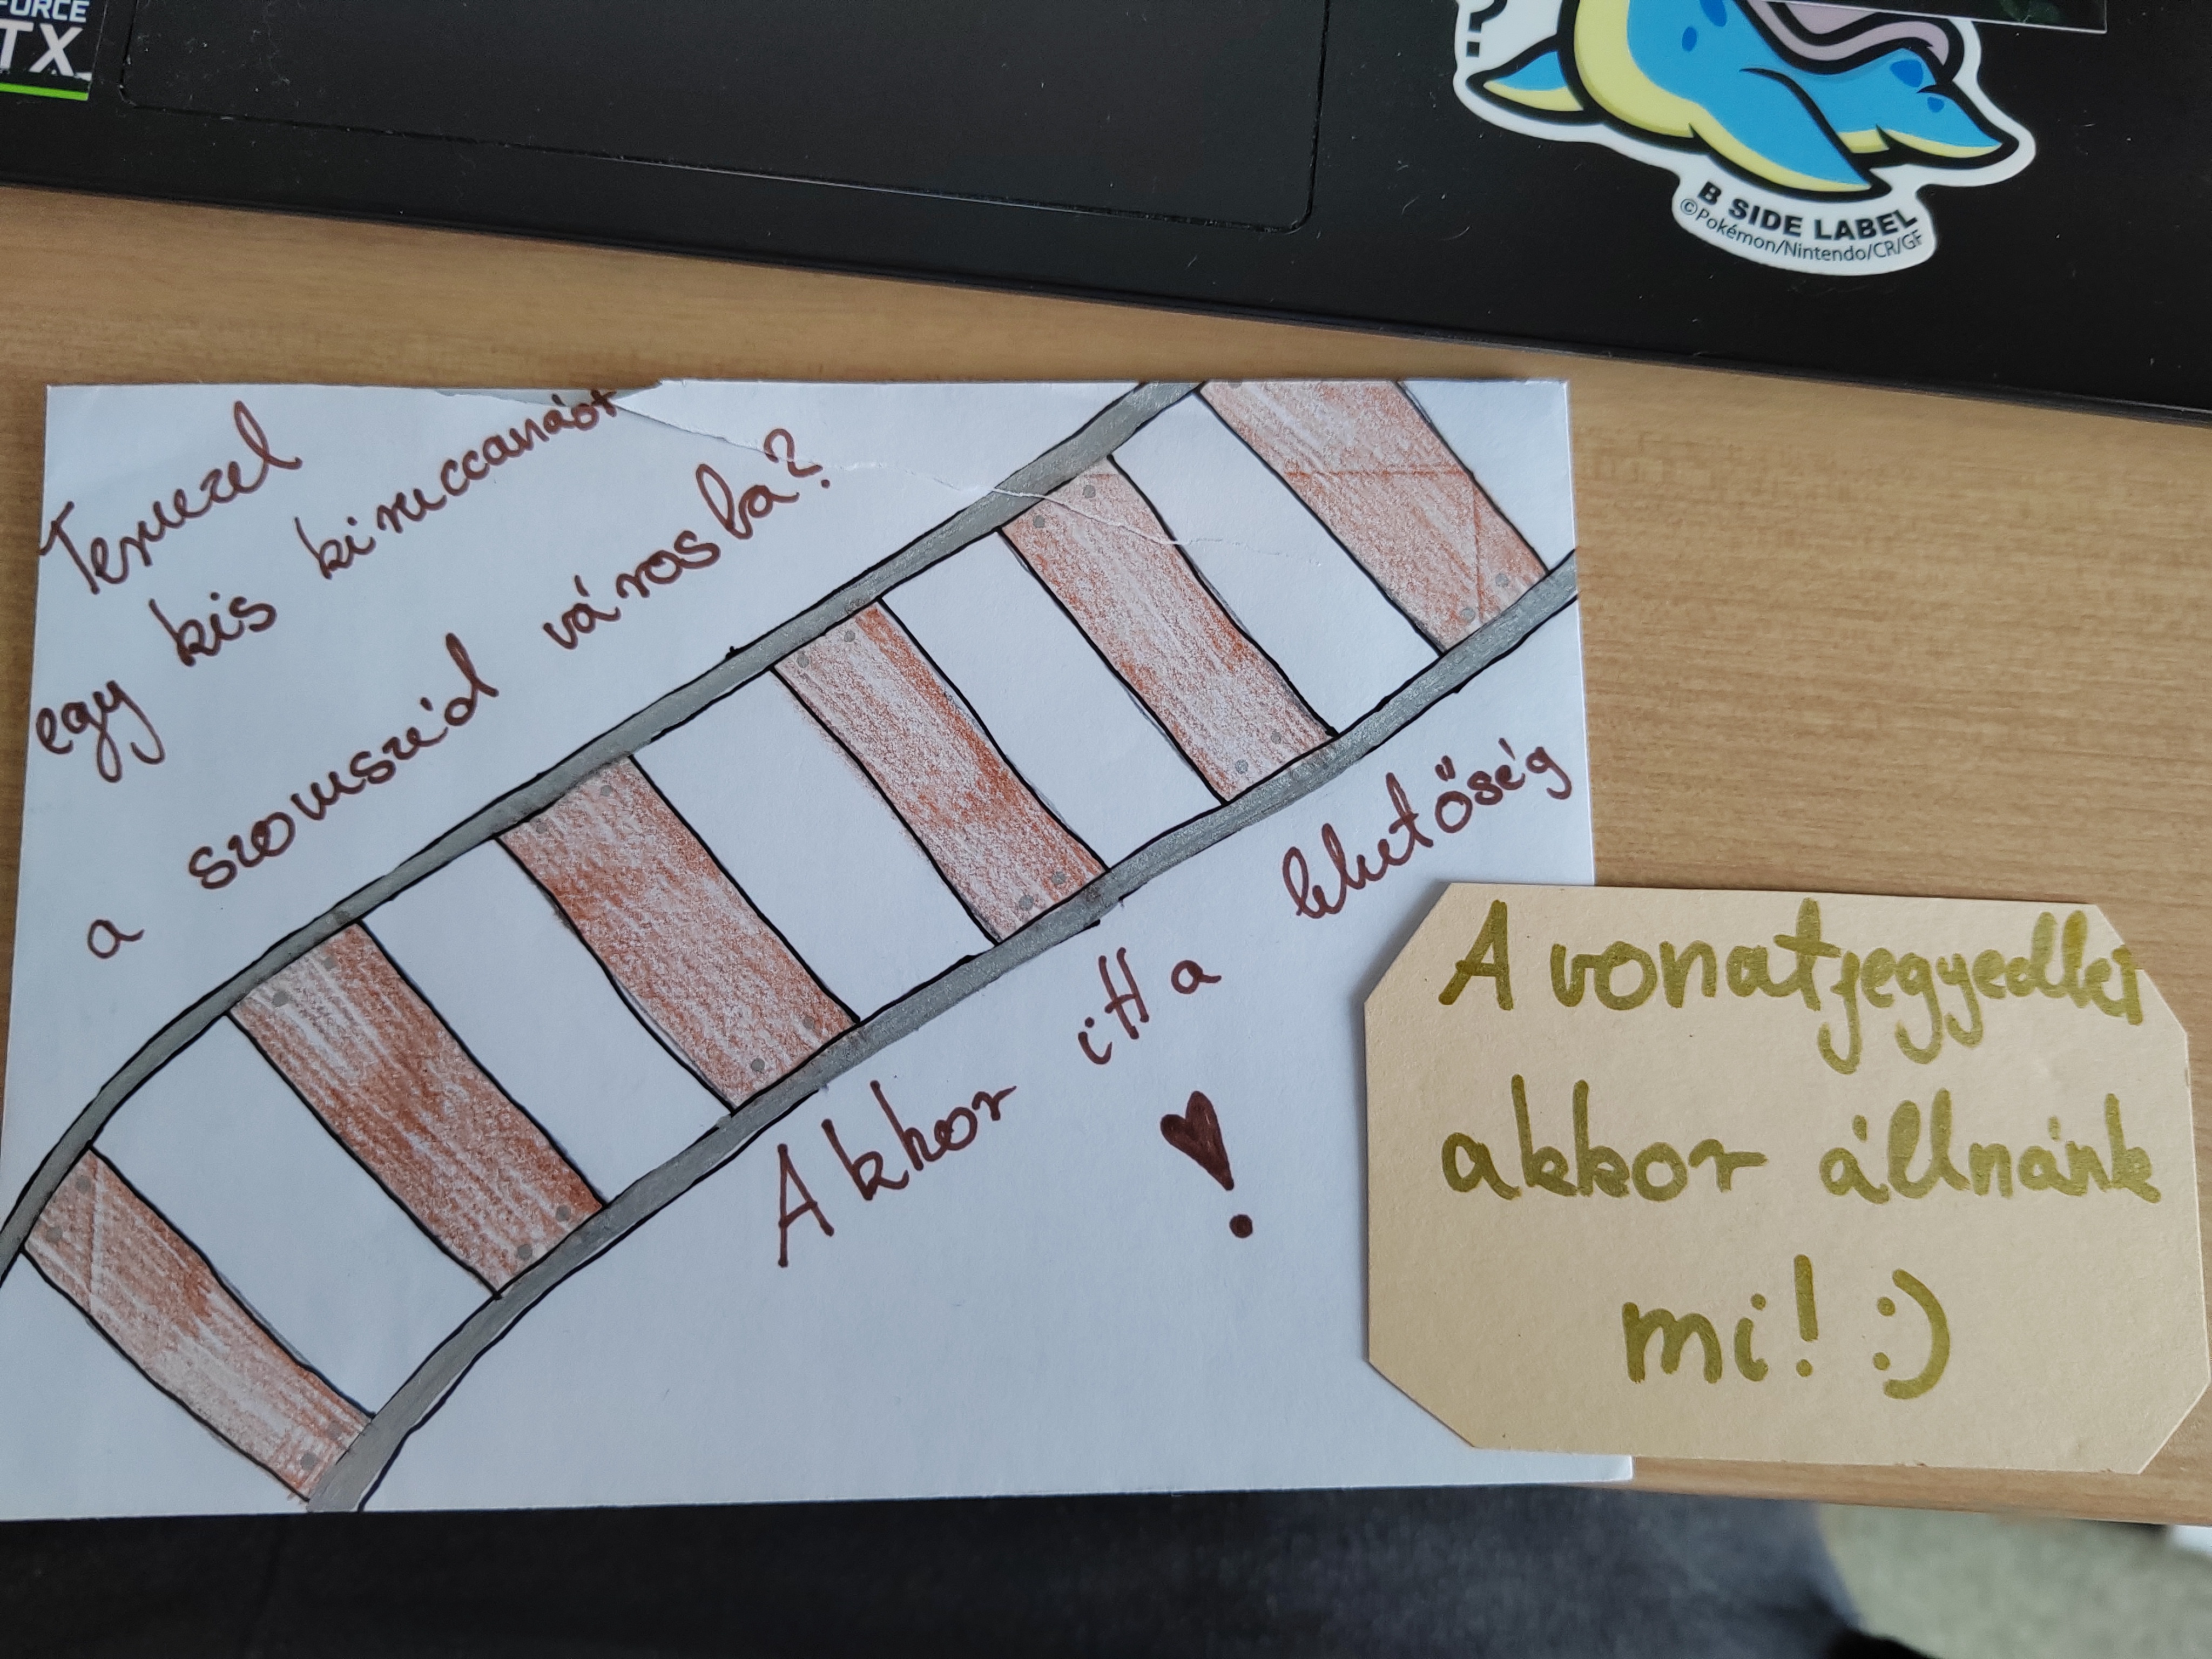 FORCE
TX
?
B SIDE LABEL
©Pokémon/Nintendo/CR/GF
Tervezel
egy kis kiruccanást
a szomszéd városba?
Akkor itt a lehetőség
!
A vonatjegyedkí
akkor állnánk
mi! :)